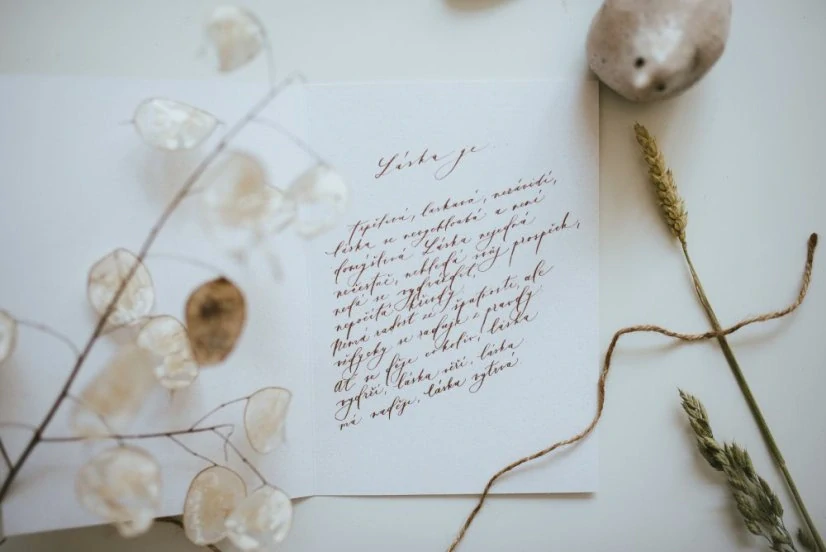 Láska je
trpělivá, laskavá, nezávidí,
láska se nevychloubá a není
domýšlivá. Láska nejedná
nečestně, nehledá svůj prospěch,
nedá se vydráždit,
nepočítá křivdy.
Nemá radost ze špatnosti, ale
vždycky se raduje z pravdy.
Ať se děje cokoliv, láska
vydrží, láska věří, láska
má naděje, láska vytrvá